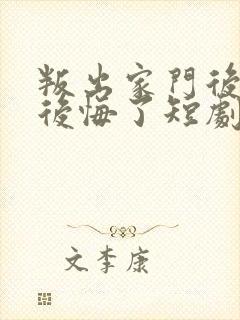 叛出家門後
後悔了短劇
文李康